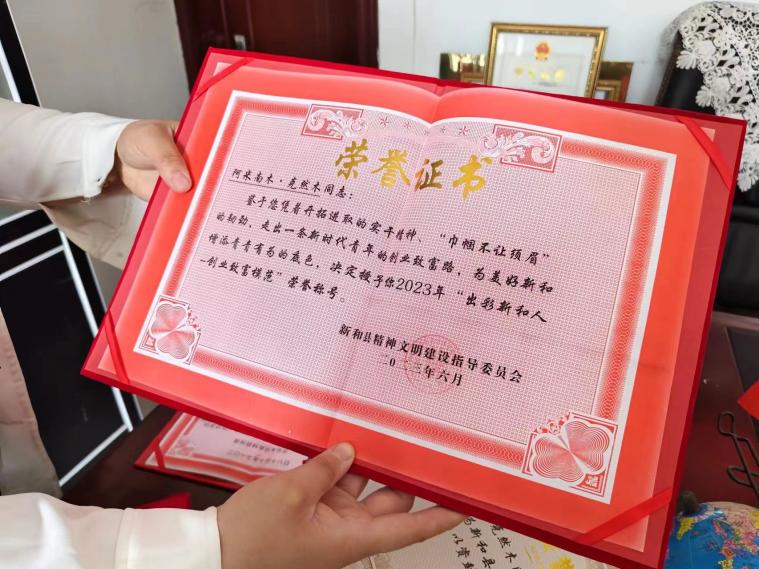 荣誉证书
阿米南木·克然木同志：
鉴于您凭着开拓进取的实干精神、“巾帼不让须眉”
的韧劲，走出一条新时代青年的创业致富路，为美好新和
增添青青有为的底色，决定授予你2023年“出彩新和人
-创业致富模范”荣誉称号。
新和县精神文明建设指导委员会
二〇二三年六月
克然木同
为新和县
以资